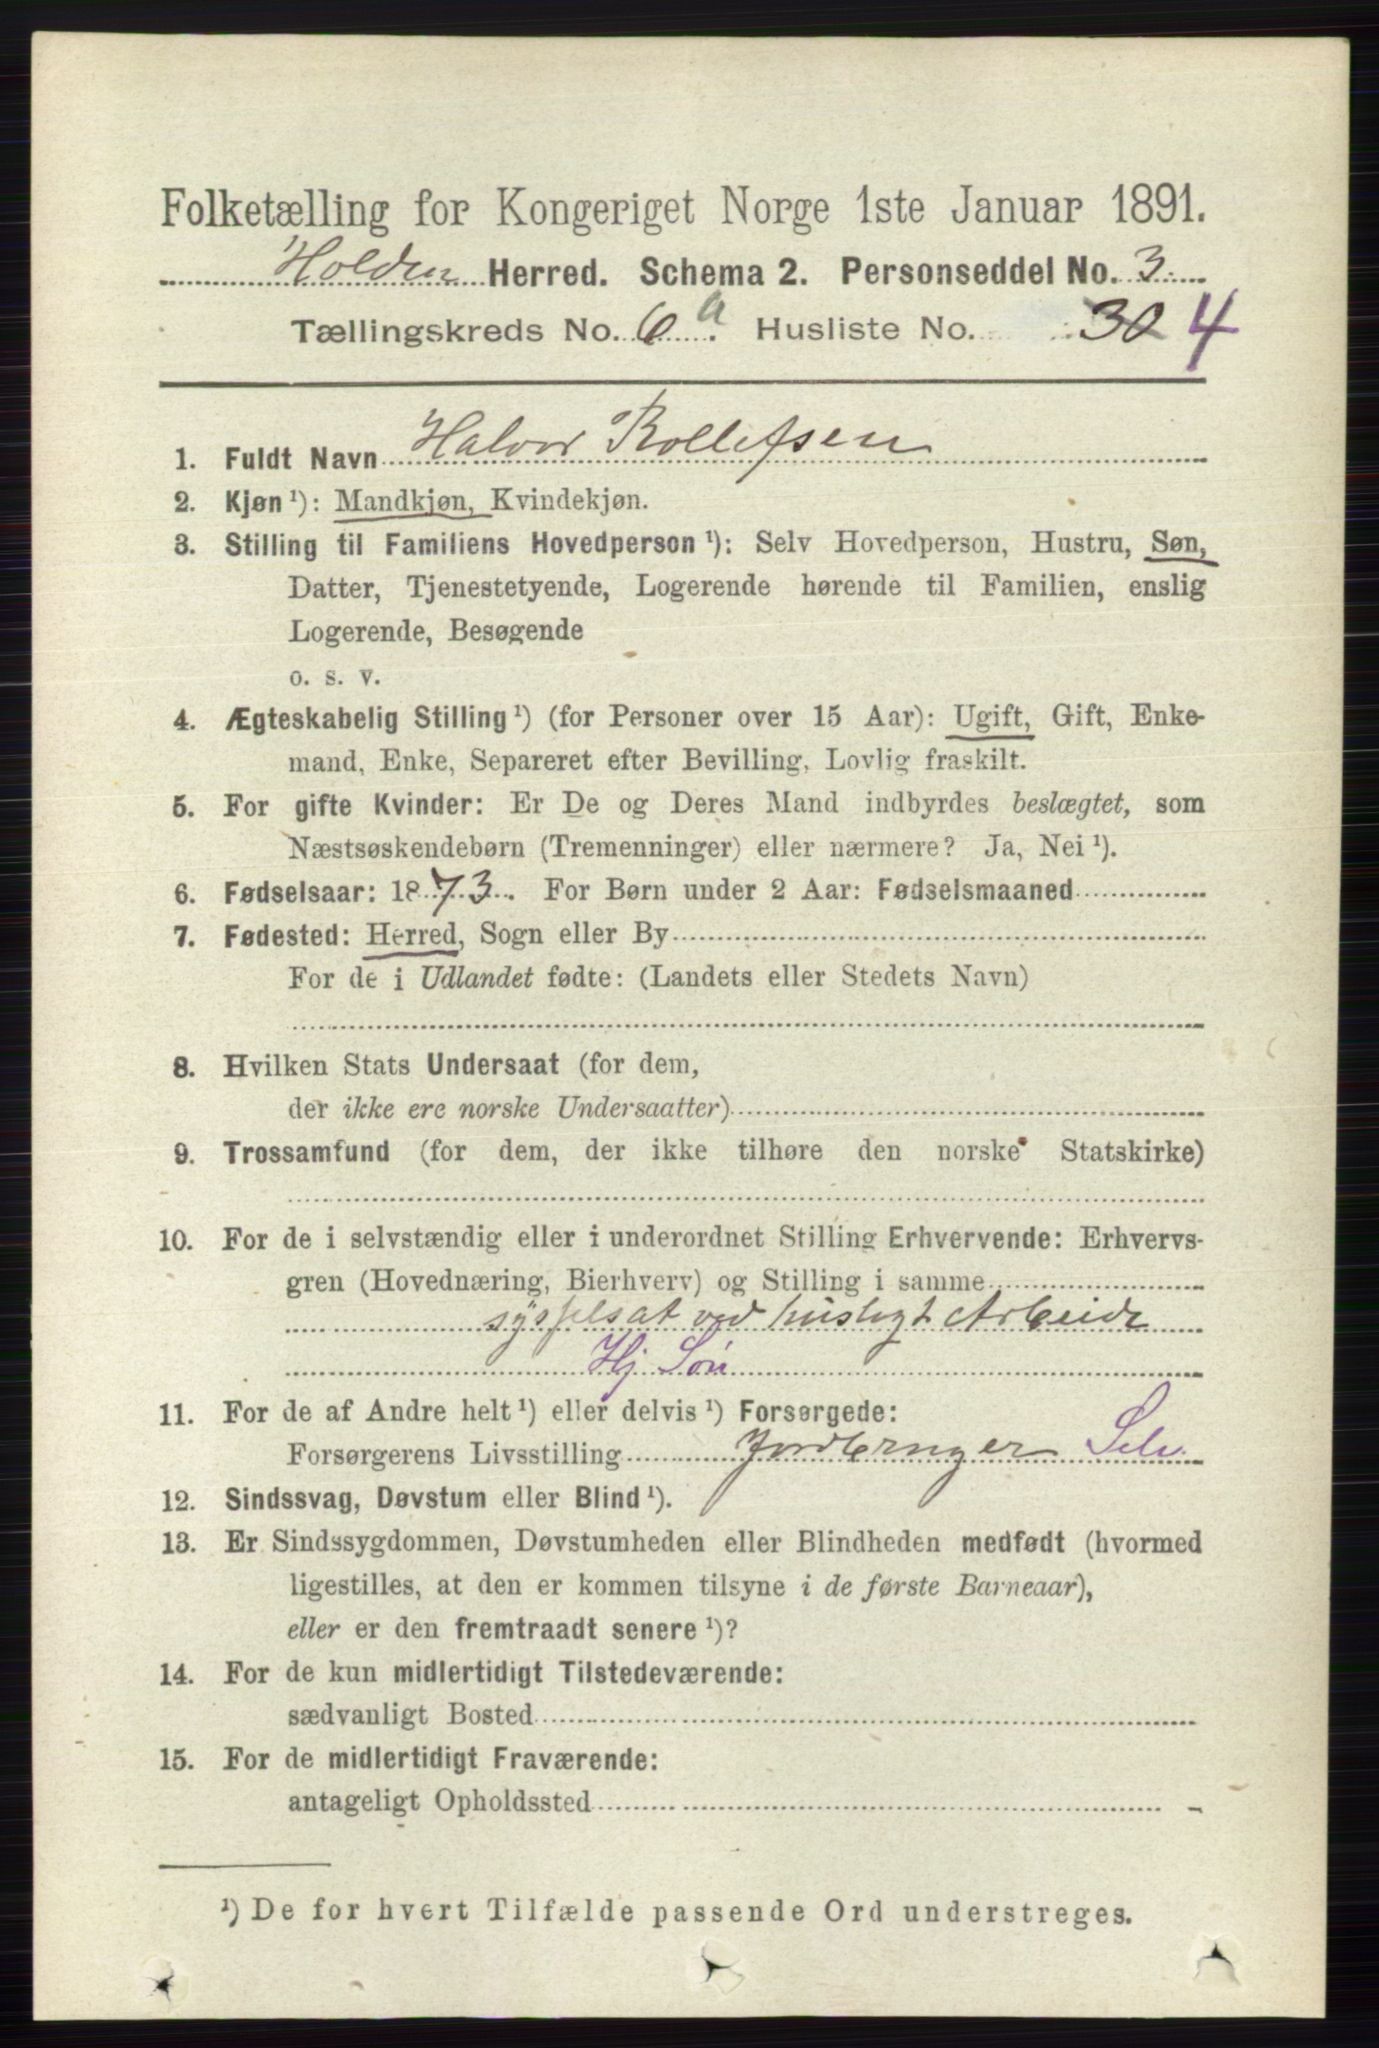 Folketælling for Kongeriget Norge 1ste Januar 1891.
Holden Herred. Schema 2. Personseddel No. 3.
Tællingskreds No. 6 a. Husliste No. 30 4
1. Fuldt Navn Halvor Rollefsen
2. Kjøn ¹): Mandkjøn, Kvindekjøn.
3. Stilling til Familiens Hovedperson ¹): Selv Hovedperson, Hustru, Søn,
Datter, Tjenestetyende, Logerende hørende til Familien, enslig
Logerende, Besøgende
o. s. v.
4. Ægteskabelig Stilling ¹) (for Personer over 15 Aar): Ugift, Gift, Enke-
mand, Enke, Separeret efter Bevilling, Lovlig fraskilt.
5. For gifte Kvinder: Er De og Deres Mand indbyrdes beslægtet, som
Næstsøskendebørn (Tremenninger) eller nærmere? Ja, Nei ¹).
6. Fødselsaar: 1873. For Børn under 2 Aar: Fødselsmaaned
7. Fødested: Herred, Sogn eller By
For de i Udlandet fødte: (Landets eller Stedets Navn)
8. Hvilken Stats Undersaat (for dem,
der ikke ere norske Undersaatter)
9. Trossamfund (for dem, der ikke tilhøre den norske Statskirke)
10. For de i selvstændig eller i underordnet Stilling Erhvervende: Erhvervs-
gren (Hovednæring, Bierhverv) og Stilling i samme
sysselsat ved husligt Arbeide
Hj Søn
11. For de af Andre helt ¹) eller delvis ¹) Forsørgede:
Forsørgerens Livsstilling Jordbruger Selv.
12. Sindssvag, Døvstum eller Blind ¹).
13. Er Sindssygdommen, Døvstumheden eller Blindheden medfødt (hvormed
ligestilles, at den er kommen tilsyne i de første Barneaar),
eller er den fremtraadt senere ¹)?
14. For de kun midlertidigt Tilstedeværende:
sædvanligt Bosted
15. For de midlertidigt Fraværende:
antageligt Opholdssted
¹) De for hvert Tilfælde passende Ord understreges.